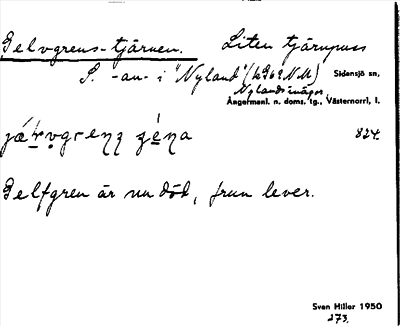 Gelvgrens-tjärnen. Liten tjärnpuss
S. -an- i "Nyland" (
Sidensjö sn,
Nylandsängar
Ångermanl. n. doms. tg., Västernorrl. l.
824.
Gelfgren är nu död, frun lever.
Sven Hiller 1950
273.